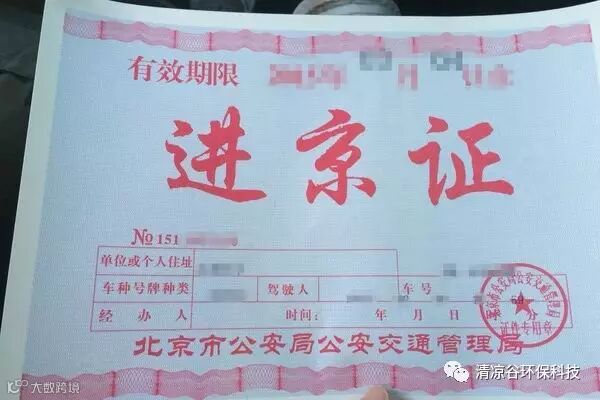 有效期限 月
进京证
№151
单位或个人住址
车种号牌种类 驾驶人 车号
经办人 时间: 年 月 日 分
北京市公安局公安交通管理局
北京市公安局公安交通管理局
证件专用章
清凉谷环保科技
大数跨境